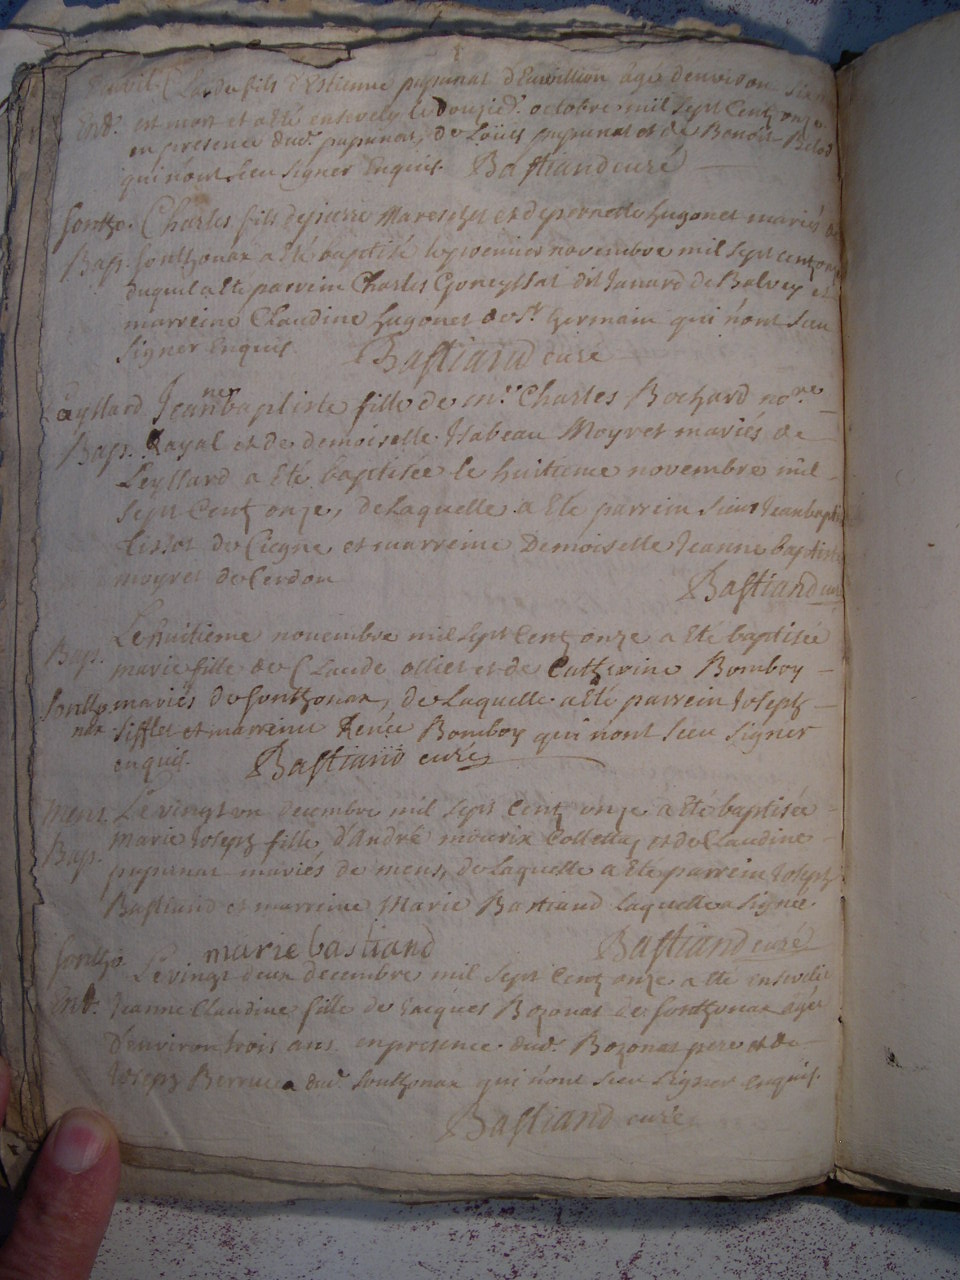 Claude fils d'Estienne pupunat d'Envillion âgé d'environ six
Ent. est mort et a Eté enseveli le douzie. octobre mil sept Cent onze
en presence dud. pupunat, de Loüis pupunat et de Benoit
qui n'ont sceu signer Enquis. Bastiand curé
Charles fils de pierre Mareschet et de pernette hugonet mariés de
Bap. fonthonax a Eté baptisé le premier novembre mil sept cent onze
duquel a Eté parrein Charles dit Janard de Balvey et
marreine Claudine hugonet de St. Germain qui n'ont sceu
signer Enquis. Bastiand curé
Leyllard Jeanne baptiste fille de mre. Charles Bochard nore.
Bap. Rayal et de demoiselle Isabeau Moyret mariés de
Leyllard a Eté baptisée le huitieme novembre mil
sept Cent onze, de Laquelle a Eté parrein sieur Jean bapti
tissot de Ciegne et marreine Demoiselle Jeanne baptiste
moyret de Cerdon Bastiand curé
Le huitieme novembre mil sept Cent onze a Eté baptisée
Bap. marie fille de Claude ollier et de Catherine Bomboy
mariés de fonthonax, de Laquelle a Eté parrein Joseph
nax sifflet et marreine Renée Bomboy qui n'ont sceu signer
enquis. Bastiand curé
ment Le vingt un decembre mil sept Cent onze a Eté baptisée
Marie Joseph fille d'André mourix Collettaz et de Claudine
Bap. pupunat mariés de ment, de Laquelle a Eté parrein Joseph
Bastiand et marreine Marie Bastiand Laquelle a signée.
marie bastiand Bastiand curé
Le vingt deux decembre mil sept Cent onze a Eté ensevelie
Ent. Jeanne Claudine fille de Jacques Bozonat de fonthonax âgée
D'environ trois ans en presence dud. Bozonat pere et de
Joseph dud. fonthonax qui n'ont sceu signer enquis.
Bastiand curé